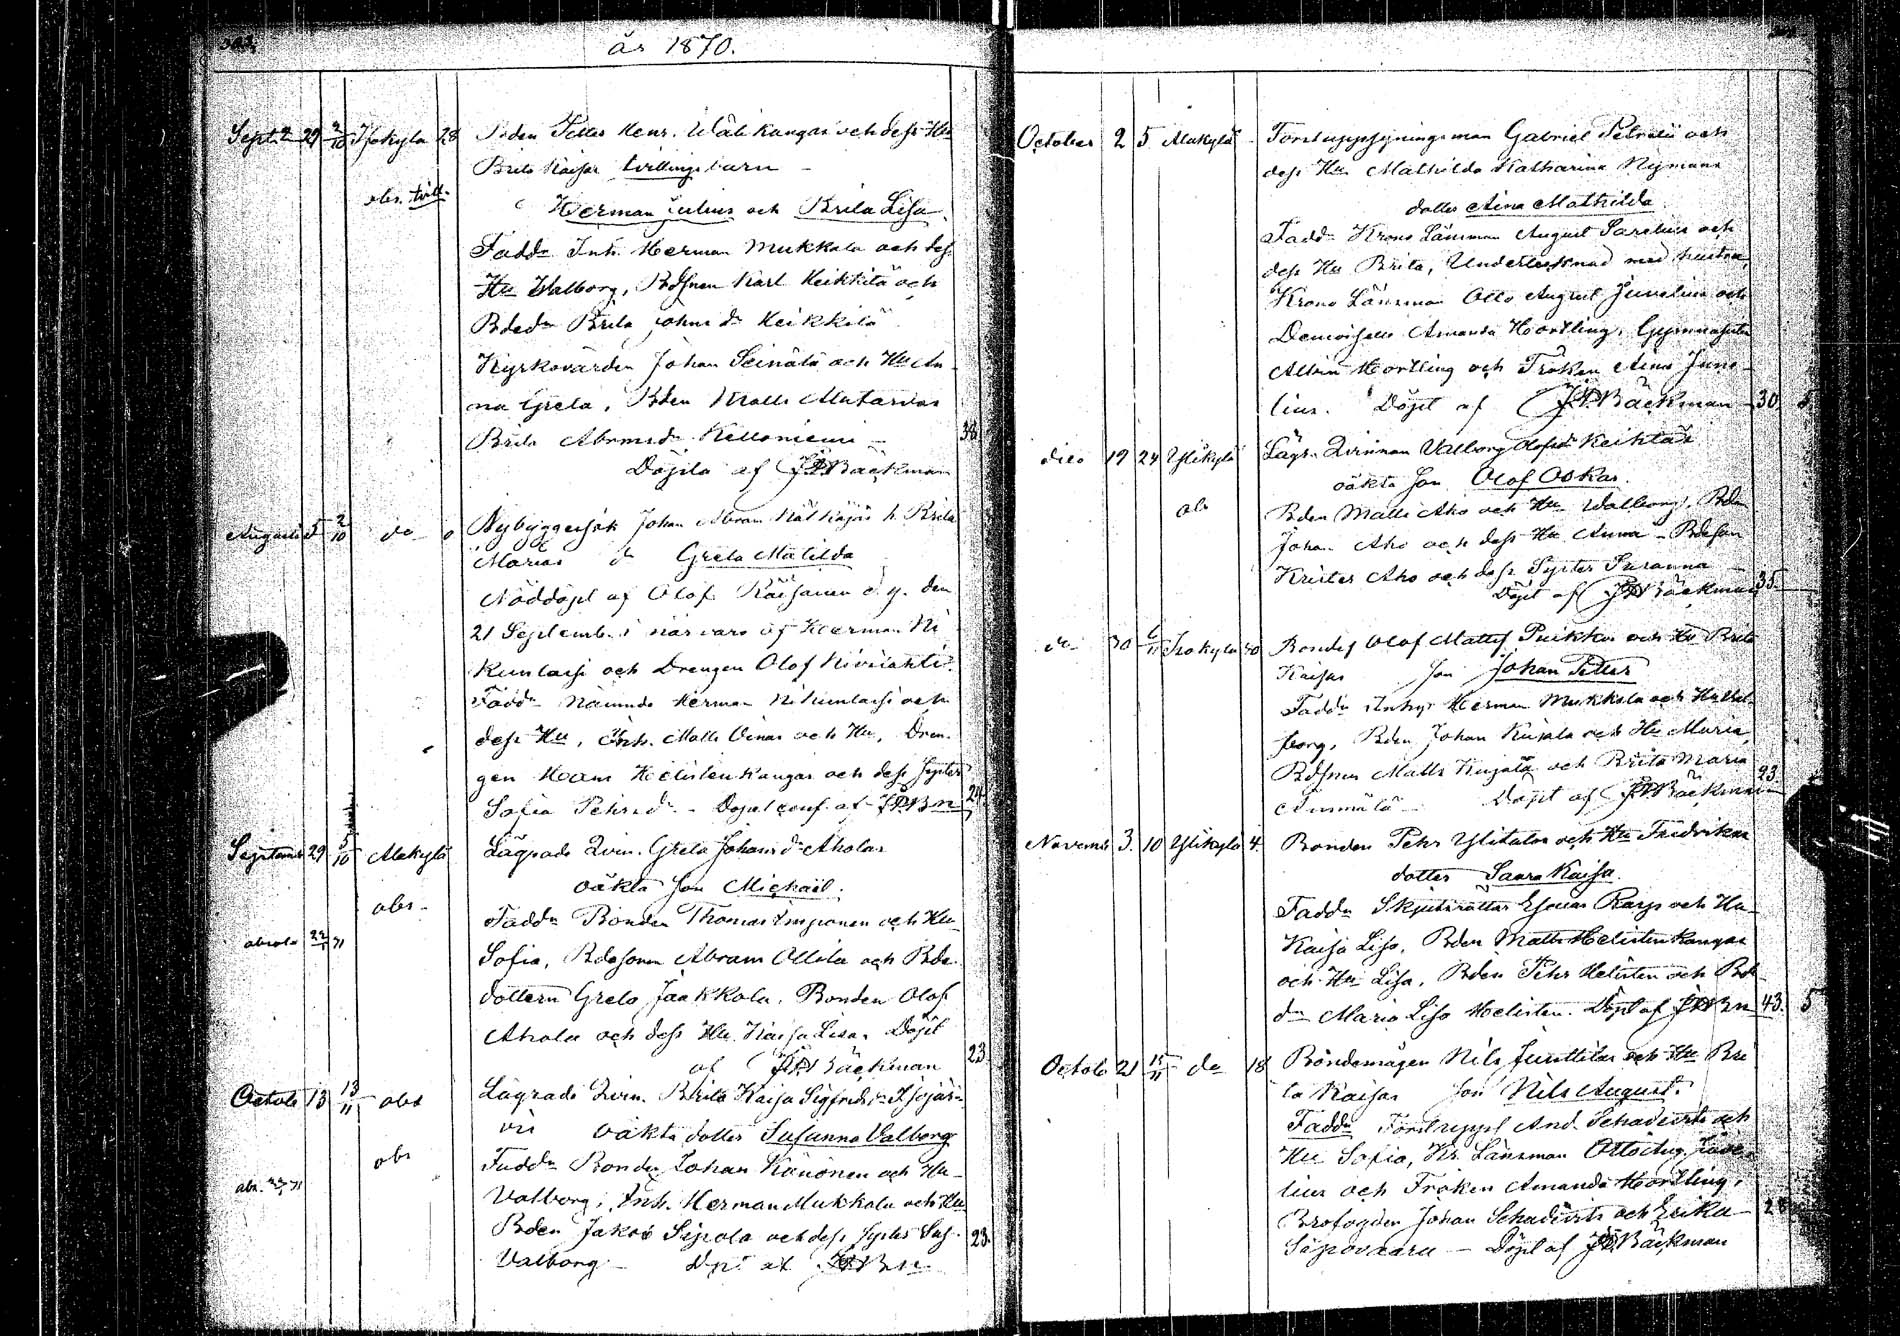 år 1870.
Sept. 29 2/10 Isokylä 28 Bden Petter Henr. Wälikangas och dess Hu
Brita Kaisas tvillingebarn
obs. tvill.
Herman Julius och Brita Lisa
Fadd. Inh. Herman Mukkala och dess
Hu Walborg, Bdsonen Karl Heikkilä och
Bdedr Brita Johns dr Heikkilä
Kyrkovärden Johan Seinälä och Hu An-
na Greta, Bden Matts
Brita Abrmsdr Kelloniemi 38
Döpta af J.W. Bäckman
Augusti 5 2/10 do 0 Nybyggersok Johan Abram h. Brita
Marias d Greta Matilda
Nöddöpt af Olof Räisänen d.y. den
21 Septemb. i närvaro af Herman Ni-
kunlassi och Drengen Olof Kivilahti.
Fadd. nämnde Herman Nikunlassi och
dess Hu, Inh. Matts Oinas och Hu, Dren-
gen Hans Helistenkangas och dess syster
Sofia Pehrsdr - Dopet conf. af J.W.Bn 24
Septemb 29 5/10 Alakylä Lägrade Qvin. Greta Johans dr Aholas
oäkta son Michaël.
obs.
Fadd. Bonden Thomas Imponen och Hu
absolv. 22/1 71
Sofia, Bdesonen Abram Ollila och Bde-
dottern Greta Jaakkola, Bonden Olof
Ahola och dess Hu Kaisa Lisa. Döpt
af J.W. Bäckman 23
Octob 13 13/11 Lägrade Qvin. Brita Kaisa Sigfrids dr Isojär-
vis oäkta dotter Susanna Valborg
obs
Fadd. Bonden Johan Könönen och Hu
abs. 22/1 71
Valborg, Inh. Herman Mukkala och Hu
Bden Jakob Sipola och dess syster Sus.
Valborg Dpt af J.W.Bn 23.
October 2 5 Alakylä Forstuppsyningsman Gabriel Petrelii och
dess Hu Mathilda Katharina Nymans
dotter Aina Mathilda.
Fadd. Krono Länsman August Sarelius och
dess Hu Brita, Undertecknad med hustru,
Krono Länsman Otto August Juvelius och
Demoiselle Amanda Hortling, Gymnasisten
Albin Hortling och Fröken Aina Juve-
lius. Döpt af J.W. Bäckman 30 5
dito 19 24 Ylikylä Lägr. Qvinnan Valborg Olofsdr
oäkta son Olof Oskar.
obs
Bden Matts Aho och Hu Walborg, Bden
Johan Aho och dess Hu Anna - Bdeson
Krister Aho och dess Syster Susanna
Döpt af J.W. Bäckman 35
do 30 6/11 Isokylä 40 Bondes Olof Mattss Puikko och Hu Brita
Kaisas son Johan Petter
Fadd. Inhys Herman Mukkala och Hu Val-
borg, Bden Johan Kujala och Hu Maria,
Bdsonen Matts Kujala och Brita Maria
Döpt af J.W. Bäckman 23.
Novemb 3. 10 Ylikylä 4. Bonden Pehr Ylitalos och Hu Fredrikas
dotter Saara Kaisa.
Fadd. Skjutsrättar Esaias Karps och Hu
Kaisa Lisa, Bden Matts Helistenkangas
och Hu Lisa, Bden Pehr Helisten och Bde
dr Maria Lisa Helisten. Döpt af J.W.Bn 43. 5
Octob 21 15/11 do 18 Bondemågen Nils Junttilas och Hu Bri-
ta Kaisas son Nils August.
Fadd. Forstuppst And. Schadevits och
Hu Sofia, Kr. Länsman Otto Aug. Juve-
lius och Fröken Amanda Hortling,
Brofogden Johan Schadevits och Erika
Sipovaara - Döpt af J.W. Bäckman 28